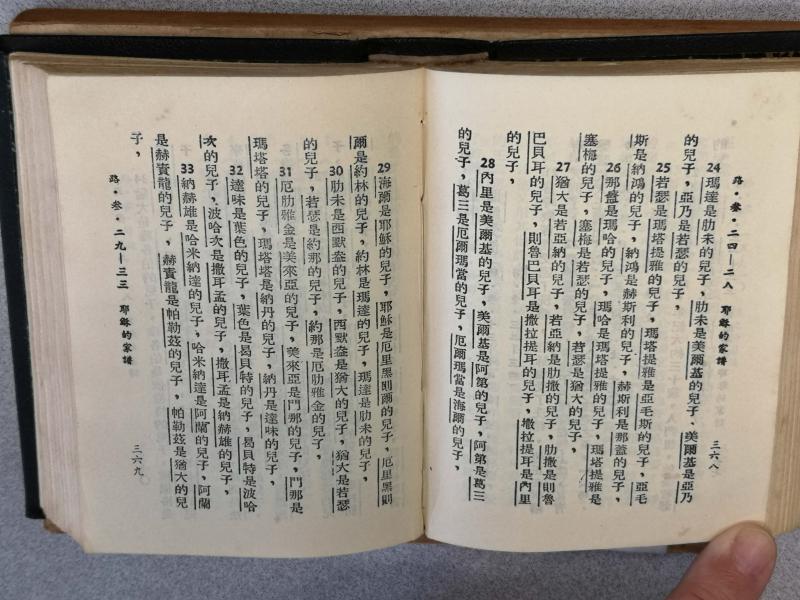 路·叁·二四—二八　耶穌的家譜　三六八
24 瑪達是肋未的兒子，肋未是美爾基的兒子、美爾基是亞乃
的兒子，亞乃是若瑟的兒子。
25 若瑟是瑪塔提雅的兒子，瑪塔提雅是亞毛斯的兒子，亞毛
斯是納鴻的兒子，納鴻是赫斯利的兒子，赫斯利是那蓋的兒子，
26 那蓋是瑪哈的兒子，瑪哈是瑪塔提雅的兒子，瑪塔提雅是
塞梅的兒子，塞梅是若瑟的兒子，若瑟是猶大的兒子。
27 猶大是若亞納的兒子，若亞納是肋撒的兒子，肋撒是則魯
巴貝耳的兒子，則魯巴貝耳是撒拉提耳的兒子，撒拉提耳是內里
的兒子，
28 內里是美爾基的兒子，美爾基是阿第的兒子，阿第是葛三
的兒子，葛三是厄爾瑪當的兒子，厄爾瑪當是海爾的兒子，
29 海爾是耶穌的兒子，耶穌是厄里黑則爾的兒子，厄里黑則
爾是約林的兒子，約林是瑪達的兒子，瑪達是肋未的兒子，
30 肋未是西默盎的兒子，西默盎是猶大的兒子，猶大是若瑟
的兒子，若瑟是約那的兒子，約那是厄肋雅金的兒子，
31 厄肋雅金是美來亞的兒子，美來亞是門那的兒子，門那是
瑪塔塔的兒子，瑪塔塔是納丹的兒子，納丹是達味的兒子，
32 達味是葉色的兒子，葉色是曷貝特的兒子，曷貝特是波哈
次的兒子，波哈次是撒耳孟的兒子，撒耳孟是納赫雄的兒子，
33 納赫雄是哈米納達的兒子，哈米納達是阿蘭的兒子，阿蘭
是赫賓龍的兒子，赫賓龍是帕勒茲的兒子，帕勒茲是猶大的兒
子，
路·叁·二九—三三　耶穌的家譜　三六九